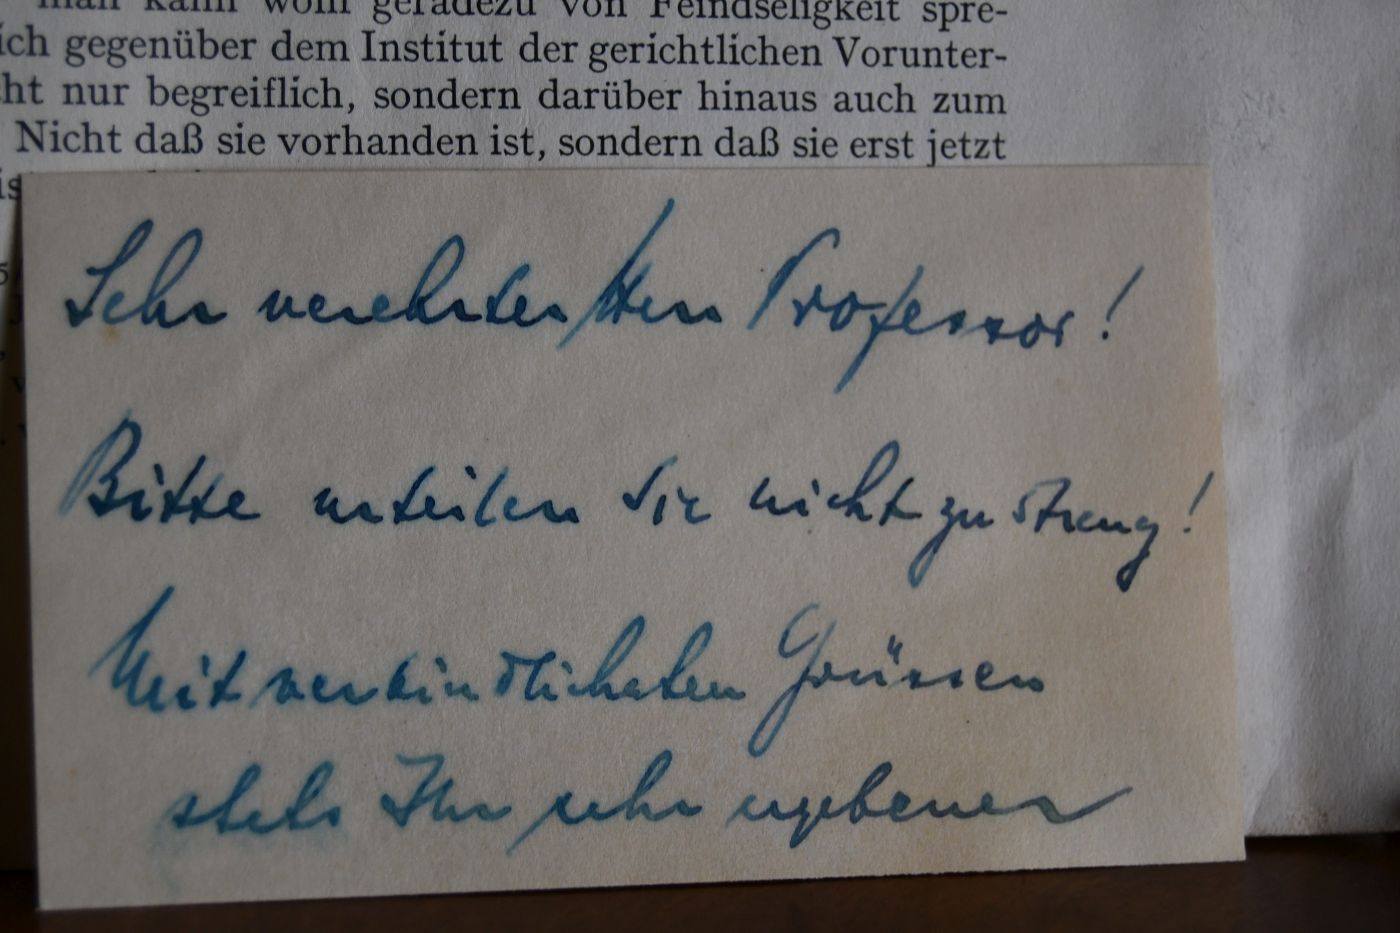 man kann wohl geradezu von Feindseligkeit spre-
ich gegenüber dem Institut der gerichtlichen Vorunter-
ht nur begreiflich, sondern darüber hinaus auch zum
Nicht daß sie vorhanden ist, sondern daß sie erst jetzt
is
Sehr verehrter Herr Professor!
Bitte urteilen Sie nicht zu streng!
Mit verbindlichsten Grüssen
stets Ihr sehr ergebener